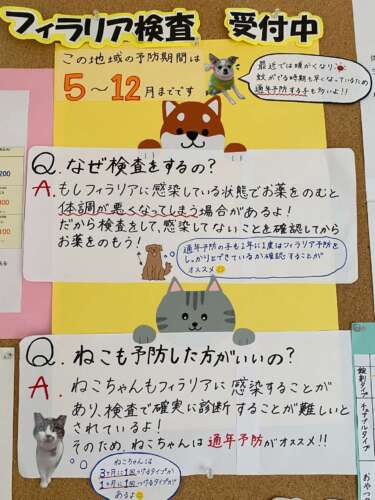 フィラリア検査 受付中
この地域の予防期間は
5〜12月までです
最近では暖かくなり
蚊がでる時期も早くなっているため
通年予防する子も多いよ!!
Q. なぜ検査をするの?
A. もしフィラリアに感染している状態でお薬をのむと
体調が悪くなってしまう場合があるよ!
だから検査をして、感染してないことを確認してから
お薬をのもう!
通年予防の子も1年に1度はフィラリア予防を
しっかりとできているか確認することが
オススメ
Q. ねこも予防した方がいいの?
A. ねこちゃんもフィラリアに感染することが
あり、検査で確実に診断することが難しいと
されているよ!
そのため、ねこちゃんは通年予防がオススメ!!
ねこちゃんは
3ヶ月に1回つけるタイプか
1ヶ月に1回つけるタイプが
あるよ
200
100
100
錠剤タイプ
チュアブルタイプ
おやつ